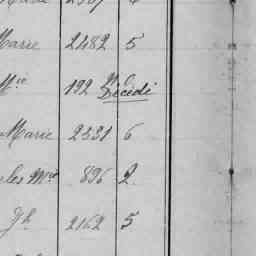 Marie 2482 5
Mie 192 Décédé
Marie 2331 6
les Mie 896 2
Jh 2162 5